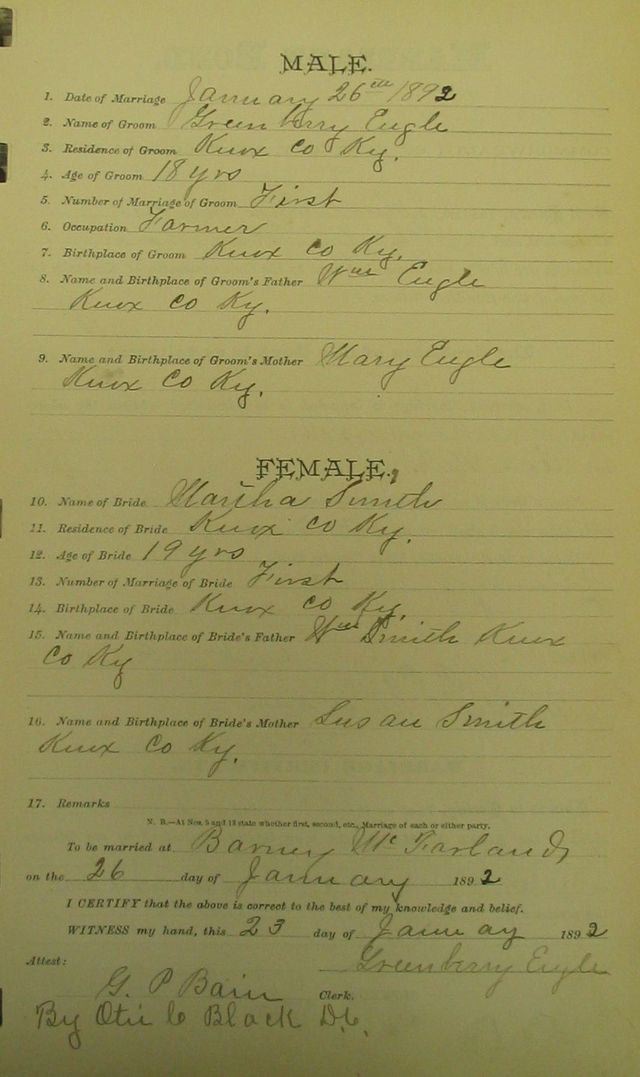 MALE.
1. Date of Marriage January 26th 1892
2. Name of Groom Greenberry Engle
3. Residence of Groom Knox Co Ky.
4. Age of Groom 18 yrs
5. Number of Marriage of Groom First
6. Occupation Farmer
7. Birthplace of Groom Knox Co Ky.
8. Name and Birthplace of Groom's Father Wm Engle
Knox Co Ky.
9. Name and Birthplace of Groom's Mother Mary Engle
Knox Co Ky.
FEMALE.
10. Name of Bride Martha Smith
11. Residence of Bride Knox Co Ky.
12. Age of Bride 19 yrs
13. Number of Marriage of Bride First
14. Birthplace of Bride Knox Co Ky.
15. Name and Birthplace of Bride's Father Wm Smith Knox
Co Ky
16. Name and Birthplace of Bride's Mother Susan Smith
Knox Co Ky.
17. Remarks
N. B.—At Nos. 5 and 13 state whether first, second, etc., Marriage of each or either party.
To be married at Barney McFarlands
on the 26 day of January 1892
I CERTIFY that the above is correct to the best of my knowledge and belief.
WITNESS my hand, this 23 day of January 1892
Greenberry Engle
Attest:
G. P Bain Clerk.
By Otis C Black D.C.